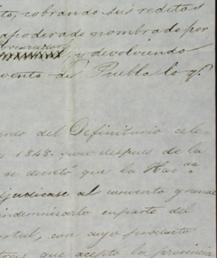 to, cobrando sus reditos
apoderado nombrado por
y devolviendo
vento de Puebla lo q.
del Definitorio cele-
1848. que despues de la
se decretó que la Hac.
djudicase al convento grande
indemnizarlo en parte del
con cuyo producto
que acepto la provincia